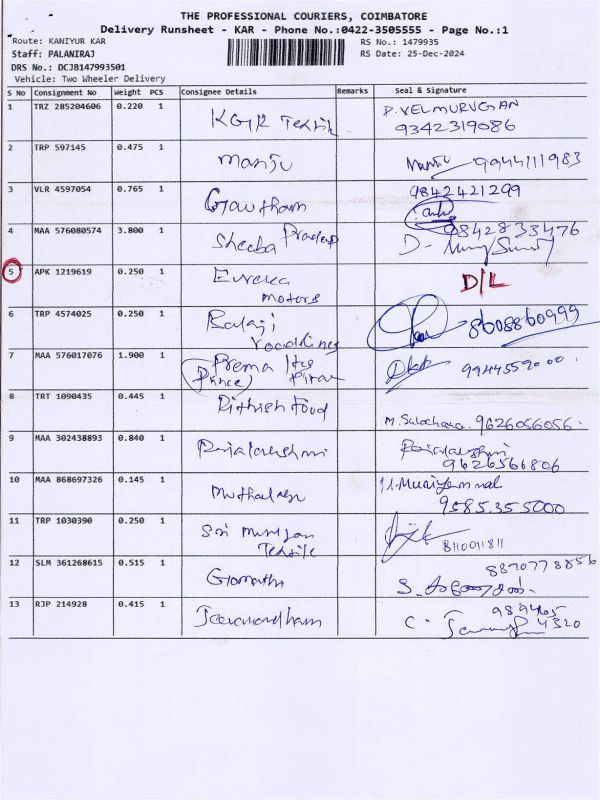 THE PROFESSIONAL COURIERS, COIMBATORE
Delivery Runsheet - KAR - Phone No.:0422-3505555 - Page No.:1
Route: KANIYUR KAR RS No.: 1479935
Staff: PALANIRAJ RS Date: 25-Dec-2024
DRS No.: DCJB147993501
Vehicle: Two Wheeler Delivery
S No Consignment No Weight PCS Consignee Details Remarks Seal & Signature
1 TRZ 285204606 0.220 1 KGR Textile P. VELMURUGAN
9342319086
2 TRP 597145 0.475 1 Manju Manju 9944111983
3 VLR 4597054 0.765 1 Gowtham 9842421299
4 MAA 576080574 3.800 1 Sheeba Pradeep 9842833476
5 APK 1219619 0.250 1 Eureka D/L
Motors
6 TRP 4574025 0.250 1 Balaji 8608860999
7 MAA 576017076 1.900 1 Prema 9944559000
(Prince)
8 TRT 1090435 0.445 1 Rithish Food M. Sulochana. 9626056056.
9 MAA 302438893 0.840 1 Rajalakshmi Rajalakshmi
9626566806
10 MAA 868697326 0.145 1 Muthalagu Muniyammal
9585355000
11 TRP 1030390 0.250 1 Sri Murugan
Textile 8110011811
12 SLM 361268615 0.515 1 Gomathi 8870778856
13 RJP 214928 0.415 1 Jeevanandham C.